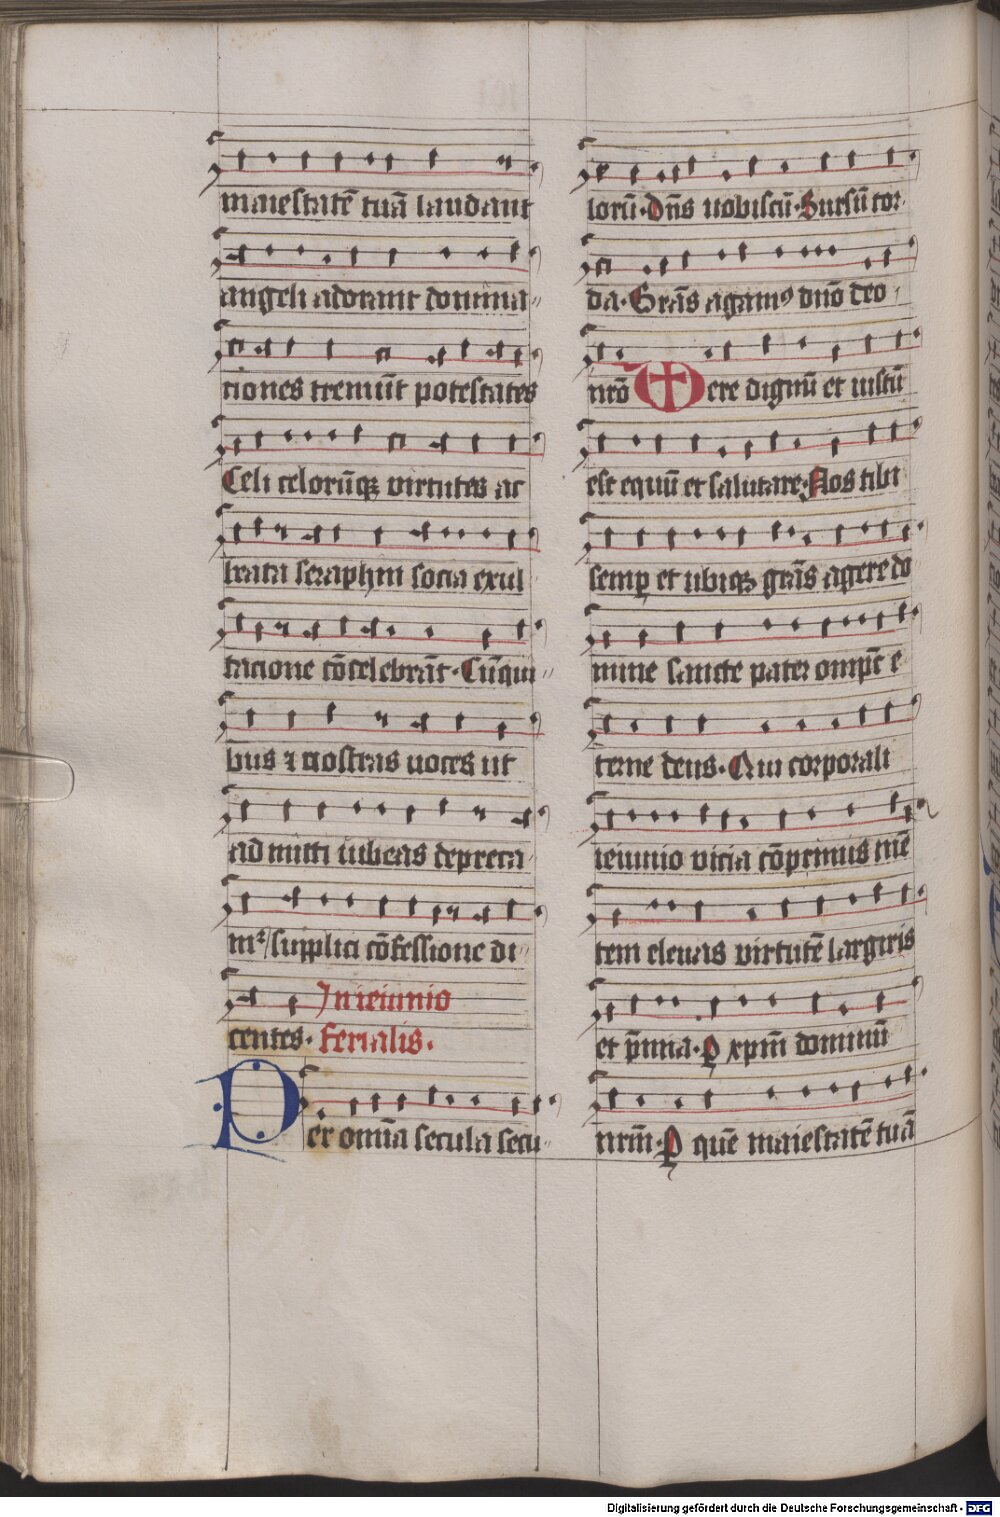 maiestatē tuā laudant
angeli adorant domina⸗
tiones tremūt potestates
Celi celorūqꝫ virtutes ac
beata seraphin socia exul
tacione cōcelebrāt · Cū qui⸗
bus ⁊ nostras uoces ut
ad mitti iubeas depreca
mꝰ / supplici cōfessione di⸗
In ieiunio
centes · ferialis ·
Per omīa secula secu⸗
lorū · Dn̄s uobiscū · Sursū cor
da · Grās agamꝰ dn̄o deo
nr̄o Vere dignū et iustū
est equū et salutare · Nos tibi
semꝑ et ubiqꝫ grās agere do
mine sancte pater omp̄s e
terne deus · Qui corporali
ieiunio vicia cōprimis mē
tem eleuas virtutē largiris
et p̄mia · P xpm̄ dominū
nrm̄ · P quē maiestatē tuā
Digitalisierung gefördert durch die Deutsche Forschungsgemeinschaft - DFG